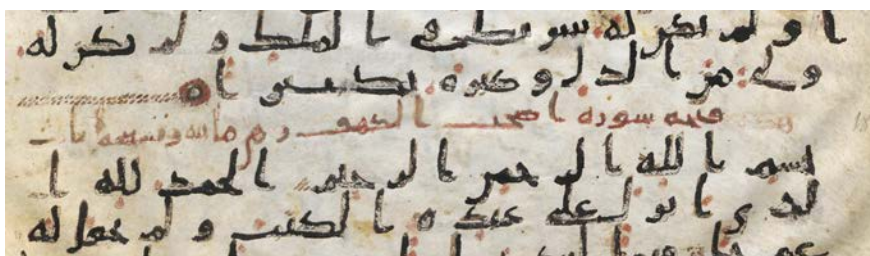 ا ولم يكن له شريك في الملك ولم يكن له
ولي من الذل وكبره تكبيرا
فتحه سورة اصحب الكهف مائه ايات
بسم الله الرحمن الرحيم الحمد لله ا
لذي انزل على عبده الكتب ولم يجعل له
عوجا قيما